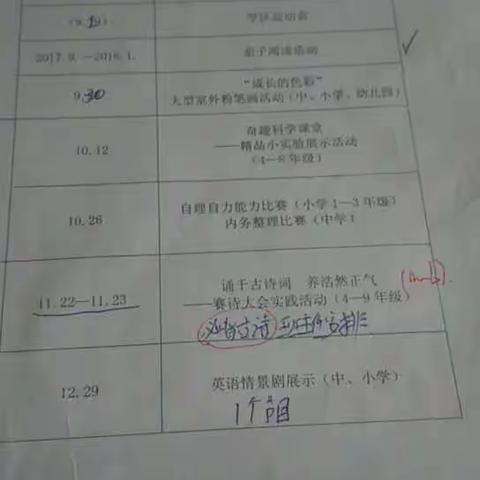 2017.9.—2018.1.
亲子阅读活动
9.30
“成长的色彩”
大型室外粉笔画活动（中、小学、幼儿园）
10.12
奇趣科学课堂
——精品小实验展示活动
（4—8 年级）
10.26
自理自力能力比赛（小学 1—3 年级）
内务整理比赛（中学）
11.22—11.23
诵千古诗词 养浩然正气
——赛诗大会实践活动（4—9 年级）
必背古诗 班主任安排
12.29
英语情景剧展示（中、小学）
1个节目